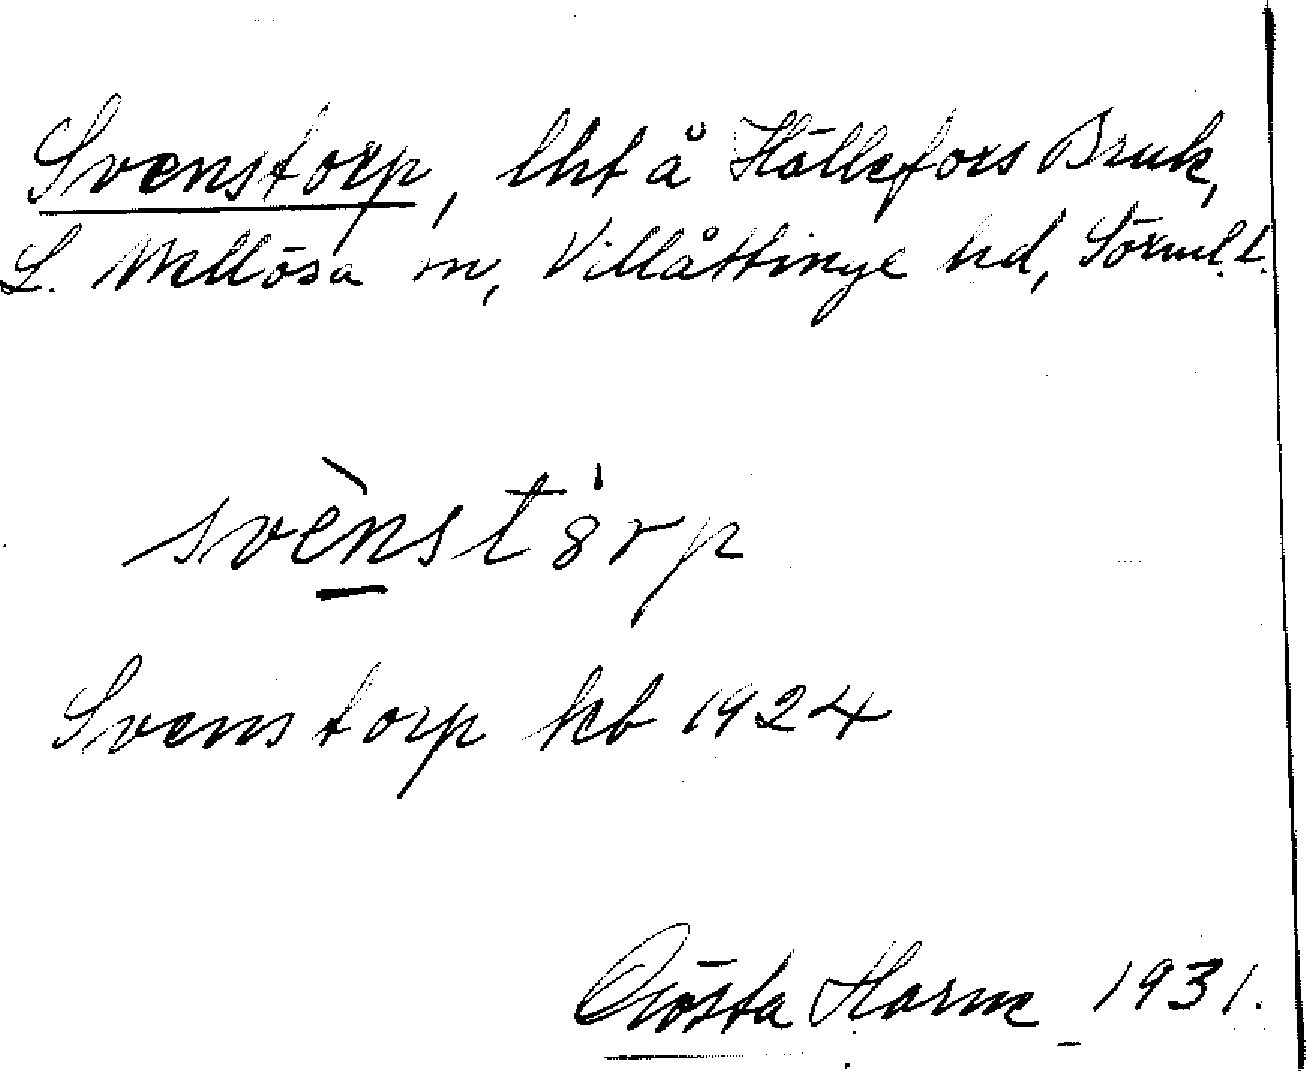 Svenstorp, lht å Hällefors Bruk,
L. Mellösa sn, Villåttinge hd, Sörml. l.
svènst8rp
Svenstorp kb 1924
Gösta Harne 1931.